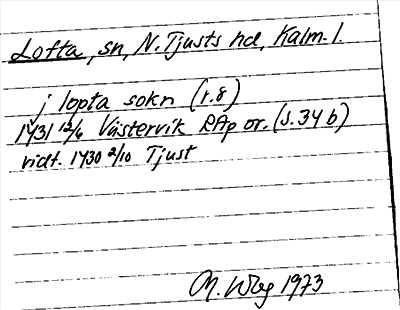 Lofta, sn, N. Tjusts hd, Kalm. l.
j lopta sokn (r. 8)
1431 12/6 Västervik RAp or. (s. 34 b)
vidt. 1430 2/10 Tjust
1973